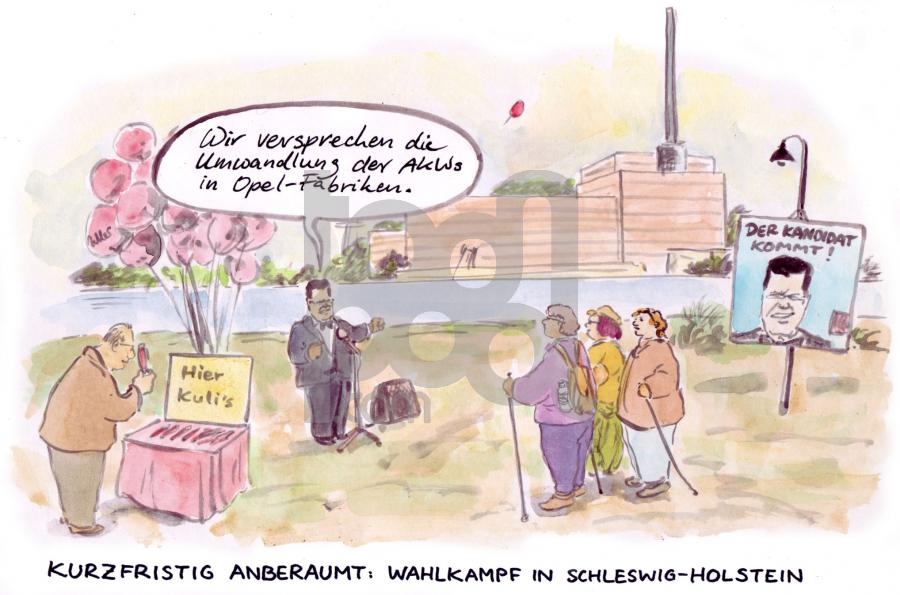 Wir versprechen die
Umwandlung der AKWs
in Opel-Fabriken.
DER KANDIDAT
KOMMT!
Hier
Kuli's
KURZFRISTIG ANBERAUMT: WAHLKAMPF IN SCHLESWIG-HOLSTEIN